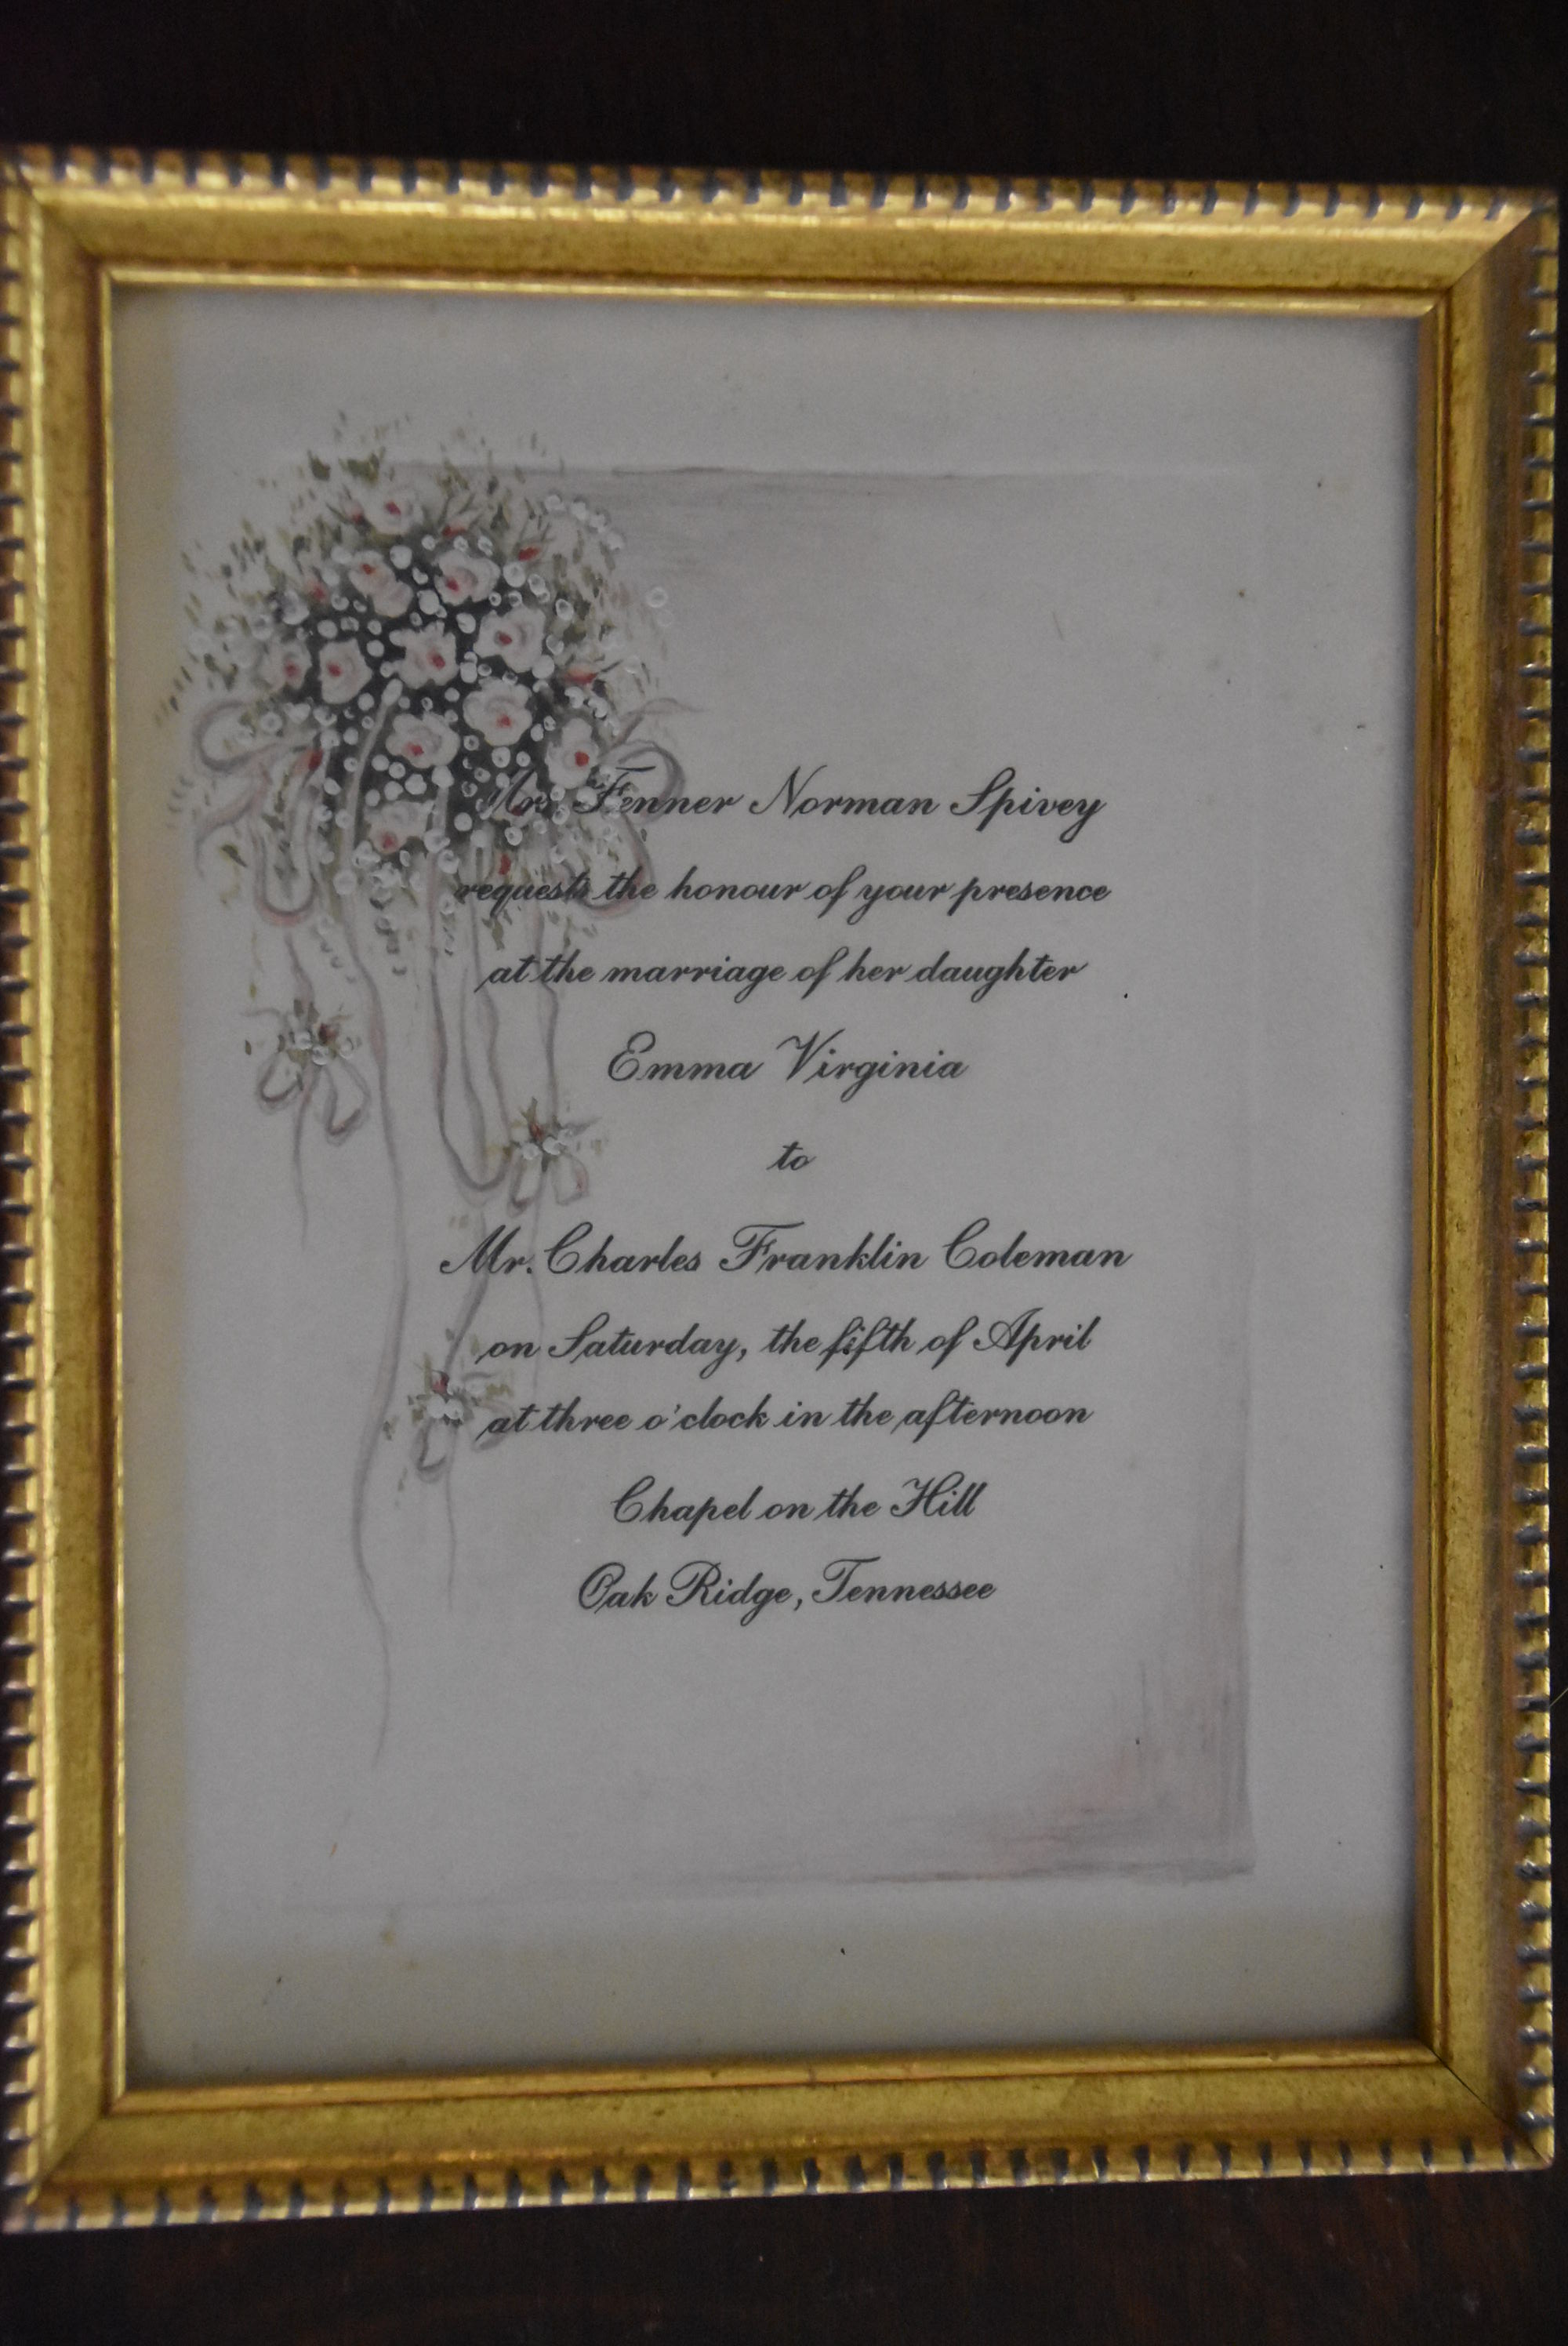 Mrs. Fenner Norman Spivey
requests the honour of your presence
at the marriage of her daughter
Emma Virginia
to
Mr. Charles Franklin Coleman
on Saturday, the fifth of April
at three o'clock in the afternoon
Chapel on the Hill
Oak Ridge, Tennessee